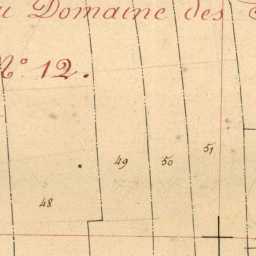 Domaine des
N.º 12.
49
50
51
48